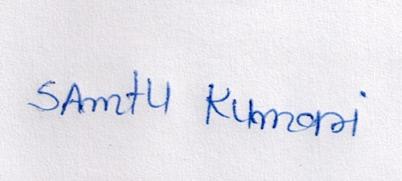 SAmtu Kumari